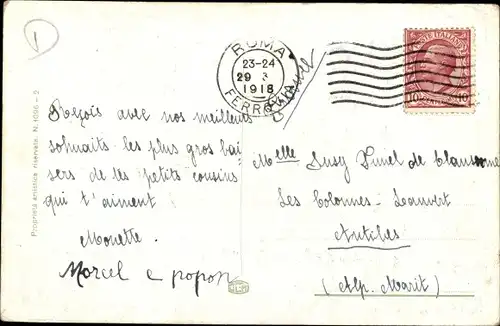 1
ROMA
23-24
29 3
1918
FERROVIA
POSTE ITALIANE
10
Proprietà artistica riservata. N. 1096-2
Reçois avec nos meilleurs
souhaits les plus gros bai-
sers de tes petits cousins
qui t'aiment
Mouette.
Marcel e popon
Melle Susy de
Les Colonnes
Antibes
(Alp. Marit)